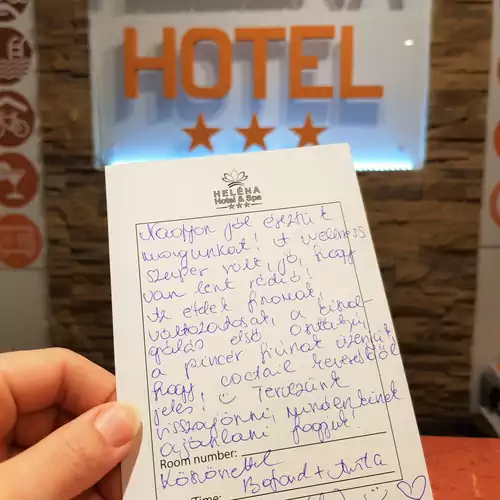 HELÉNA
HOTEL
HELÉNA
Hotel & Spa
Nagyon jól éreztük
magunkat! A wellness
szuper volt, jó, hogy
van lent rádió!
Az ételek finomak,
változatosak, a kiszol-
gálás első osztályú,
a pincér fiúnak üzenjük
hogy coctail keverésből
jeles! Tervezünk
visszajönni, mindenkinek
ajánlani fogjuk!
Room number:
Köszönettel
Time: